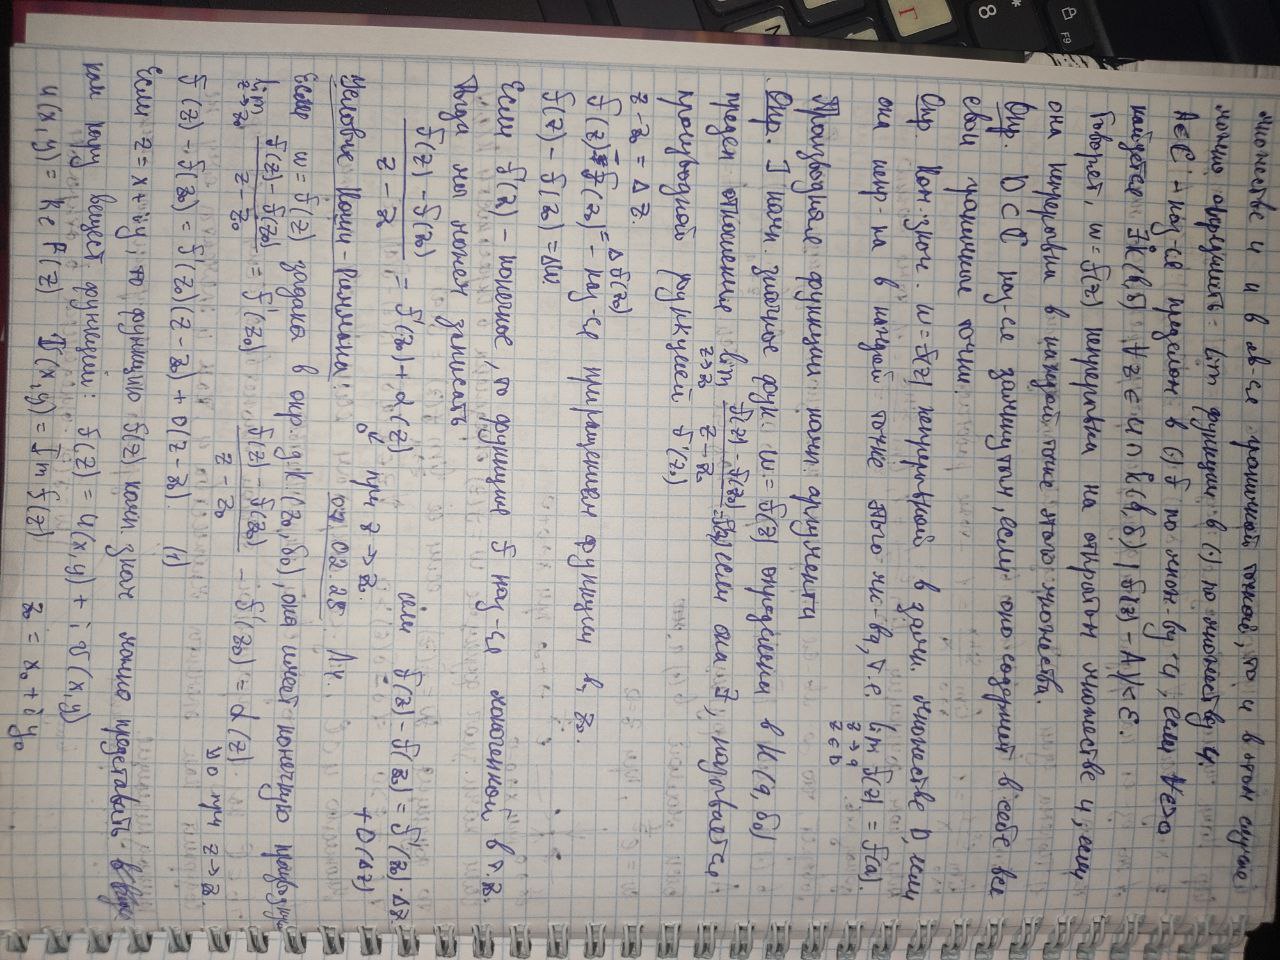 множестве u и в ав-се граничной точкой, то и в этом случае
можно определить lim функции в (·) по множеству u.
A∈ℂ - наз-ся пределом в (·) по множ-ву u, если ∀ε>0
найдется ∃ K(b,δ) ∀z∈u∩K(b,δ) |f(z)-A|<ε.
Говорят, w=f(z) непрерывна на открытом множестве u, если
она непрерывна в каждой точке этого множества.
Опр. D⊂ℂ наз-ся замкнутым, если оно содержит в себе все
свои граничные точки.
Опр Ком.-знач. w=f(z) непрерывной в замкн. множестве D, если
она непр-на в каждой точке этого мн-ва, т.е. lim f(z) = f(a).
z→a
z∈D
Производные функции комп. аргумента
Опр. комп. значные функ. w=f(z) определена в K(a,δ0)
предел отношение lim z→z0 f(z)-f(z0) / z-z0 если он ∃, называется
производной функцией f'(z0)
z-z0 = Δz.
f(z)-f(z0) = Δf(z0) - наз-ся приращением функции в z0.
f(z)-f(z0)=Δw.
Если f'(z0) - конечное, то функция f наз-ся моногенной в т. z0.
Тогда мы можем записать
f(z)-f(z0) / z-z0 = f'(z0)+α(z) при z→z0 или f(z)-f(z0)=f'(z0)·Δz
0
+O(Δz)
Условие Коши-Римана: 02.25 лк.
Если w=f(z) задана в окр-ти K(z0,δ0), она имеет конечную производную
lim z→z0 f(z)-f(z0) / z-z0 = f'(z0) f(z)-f(z0) / z-z0 - f'(z0) = α(z).
→0 при z→z0.
f(z)-f(z0)=f'(z0)(z-z0)+O(z-z0). (1)
Если z=x+iy, то функцию f(z) комп. знач можно представить в виде
пары вещест. функций: f(z)=u(x,y)+iv(x,y)
u(x,y)=Re f(z) v(x,y)=Im f(z) z0=x0+iy0